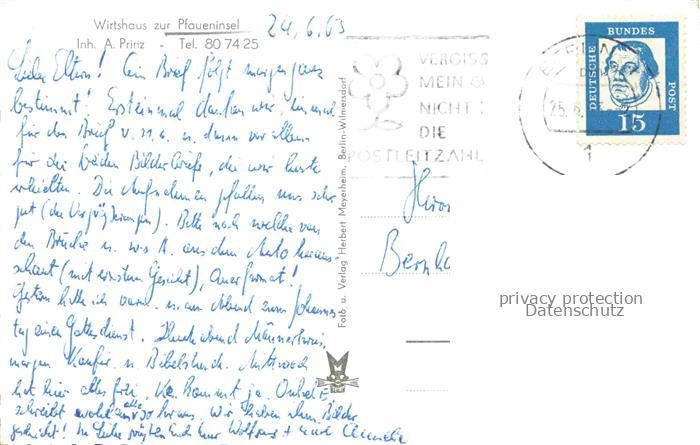 Wirtshaus zur Pfaueninsel
24.6.63
Inh. A. Prinz - Tel. 80 74 25
Liebe Eltern! Ein Brief folgt morgen ganz
bestimmt! Ersteinmal danken wir
für den Brief v. u. dann vor allem
für die beiden Bilderbriefe, die wir heute
erhielten. Die Aufnahmen gefallen uns sehr
gut (die Vergrößerungen). Bitte noch welche von
der Brücke u. wo A. aus dem Auto heraus-
schaut (mit ernstem Gesicht), Querformat!
Gestern hatte ich vorm. u. am Abend zum Johannes-
tag einen Gottesdienst. Heute abend Männerkreis,
morgen Konfir. u. Bibelstunde. Mittwoch
hat hier alles frei, kommt ja.
schreibt wohl Wir haben Bilder
geschickt! In Liebe grüßen Euch Euer Wolfgang + Eure
Foto u. Verlag Herbert Meyerheim, Berlin-Wilmersdorf
VERGISS
MEIN
NICHT
DIE
POSTLEITZAHL
BERLIN
25.6.
1
DEUTSCHE BUNDES POST
15
Herrn
Bernha
privacy protection
Datenschutz